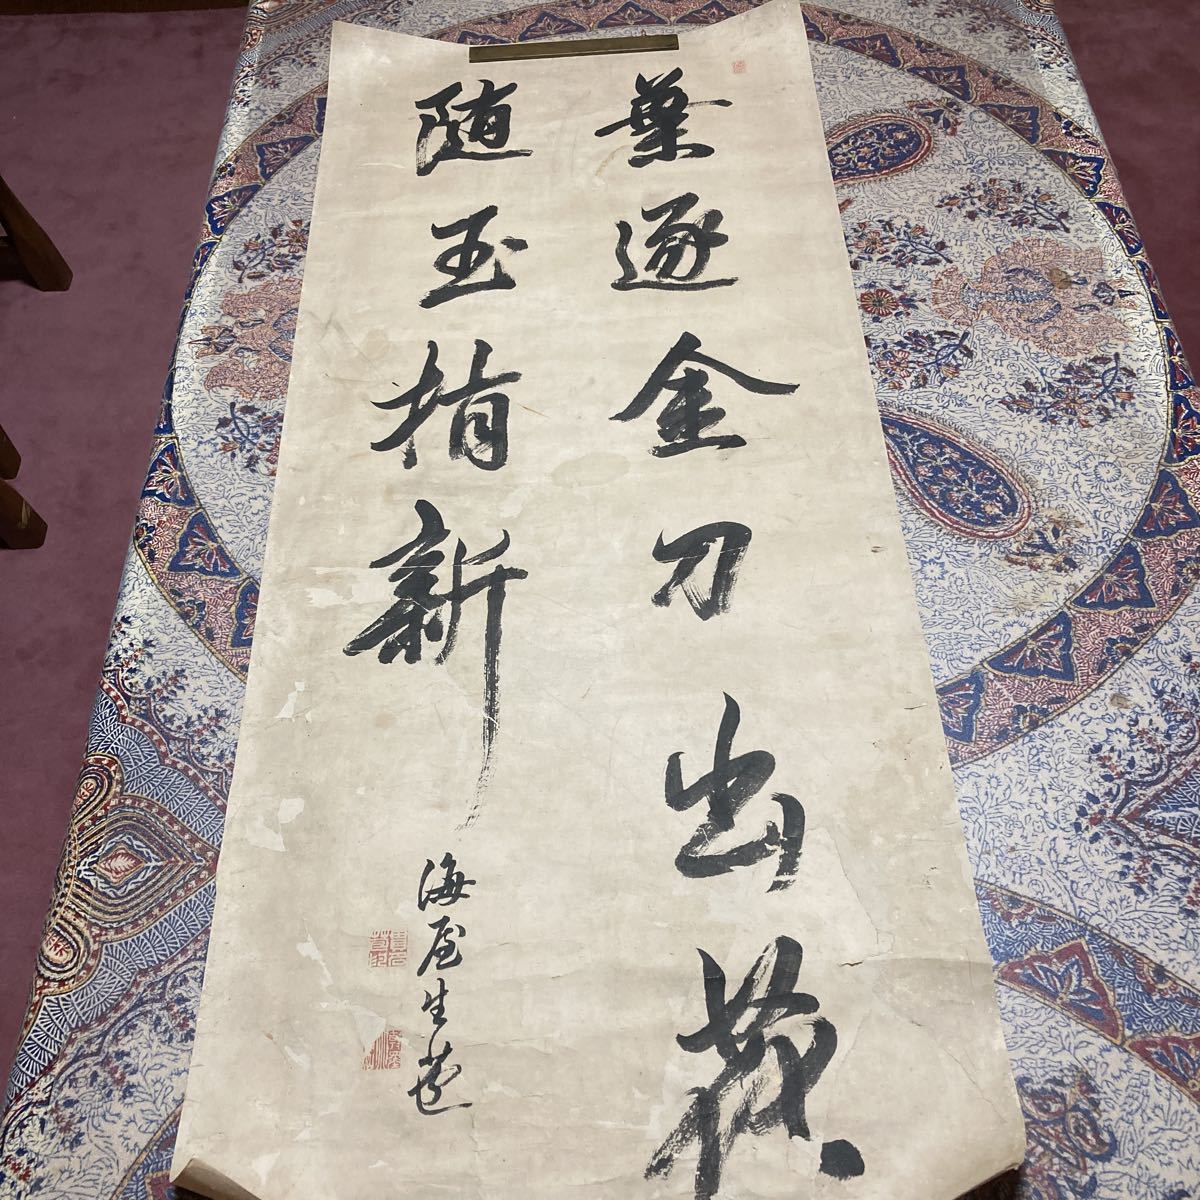 葉逐金刀出花
随玉指新
海屋生苞